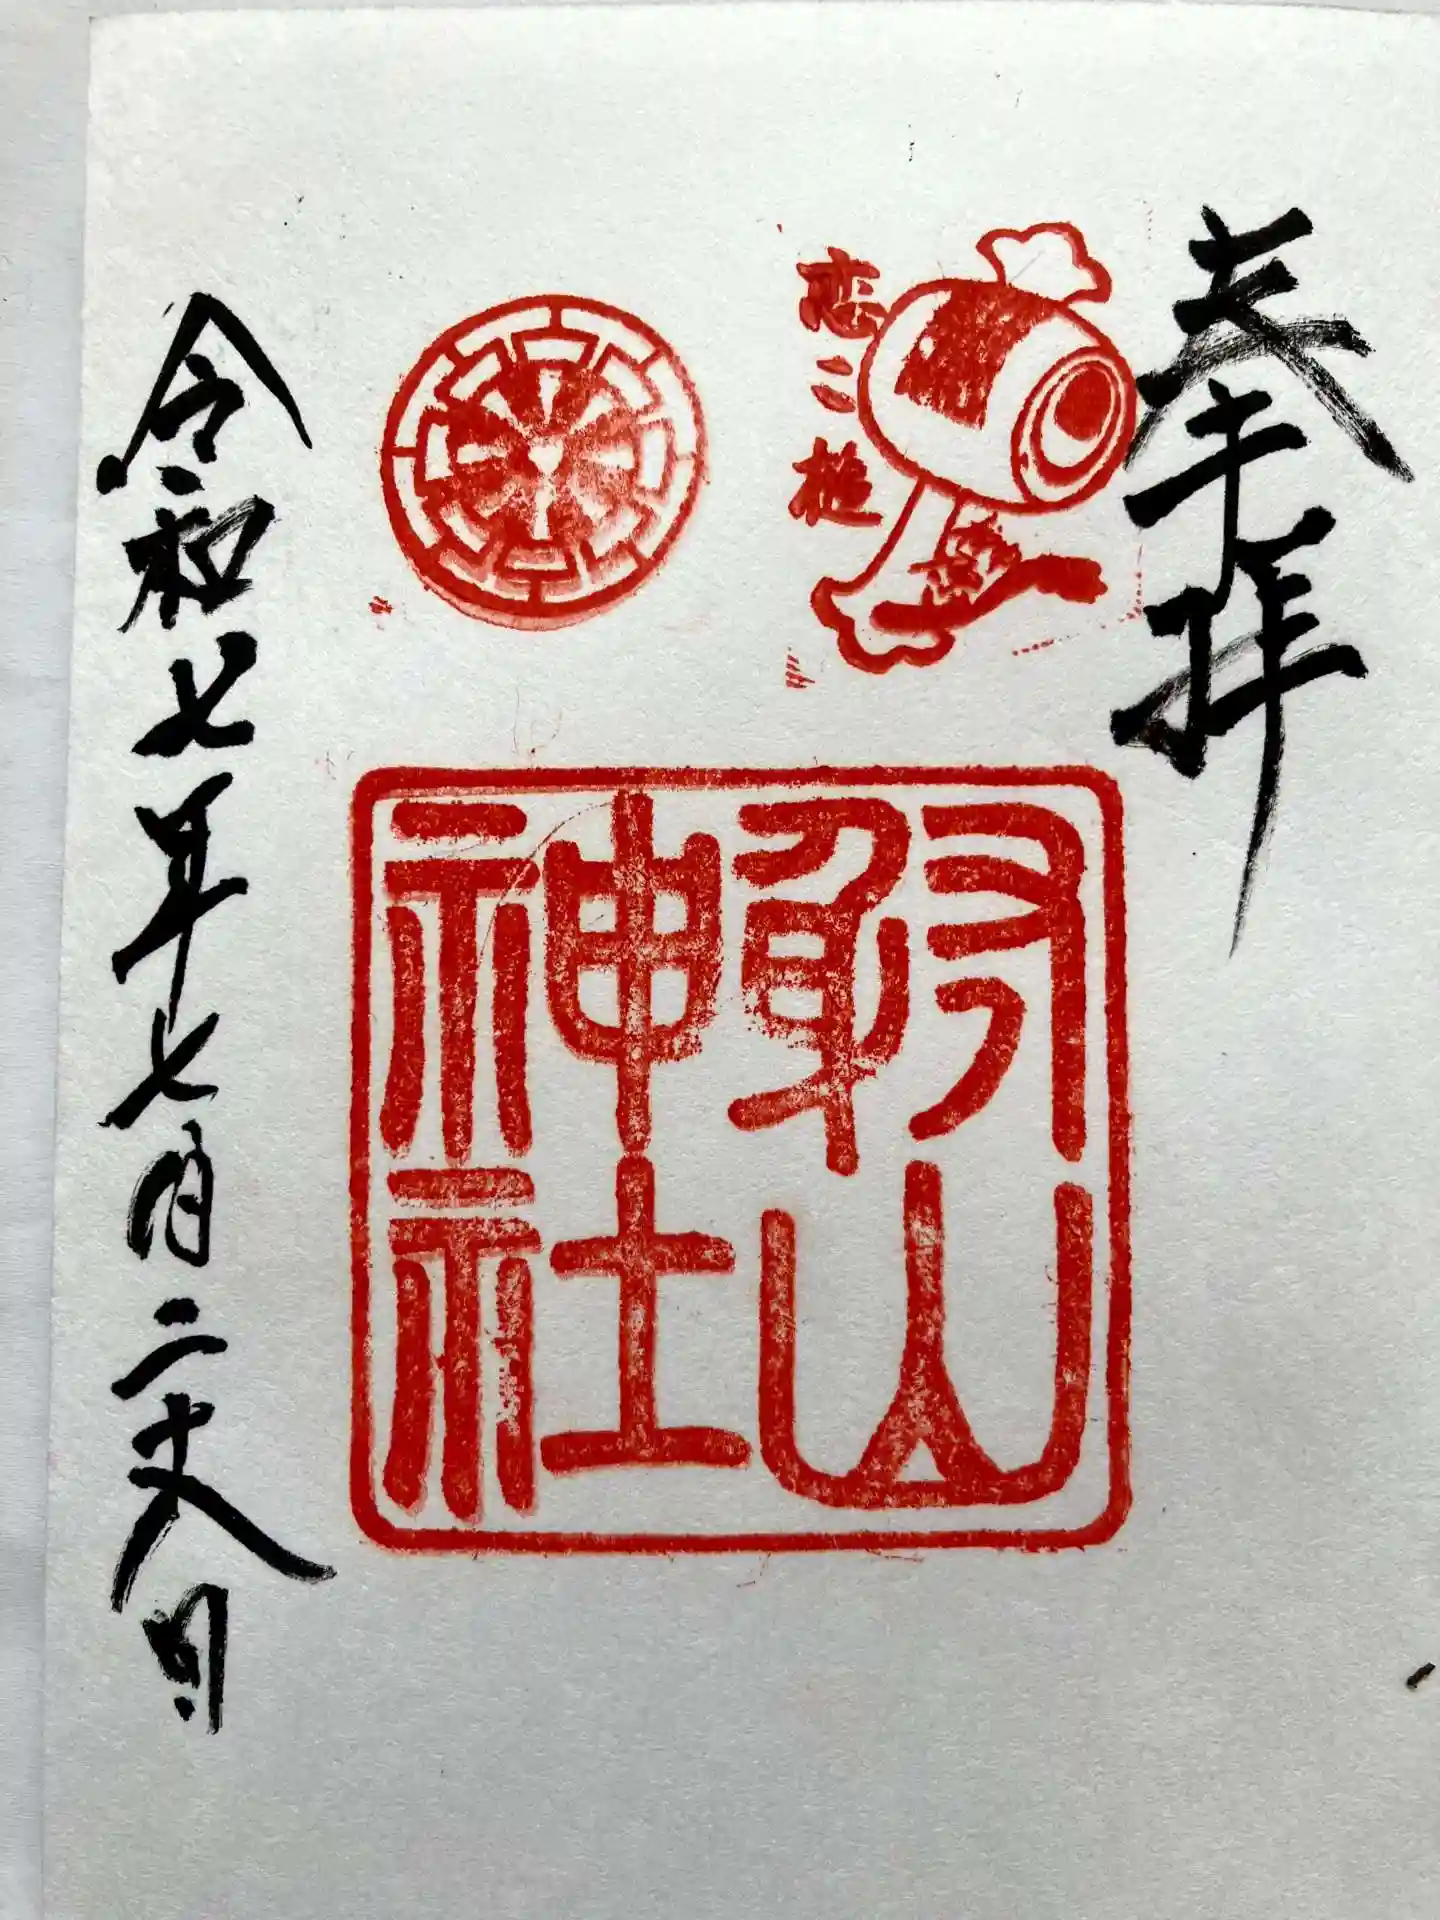 奉拝
恋こ槌
射山神社
令和七年七月二十八日